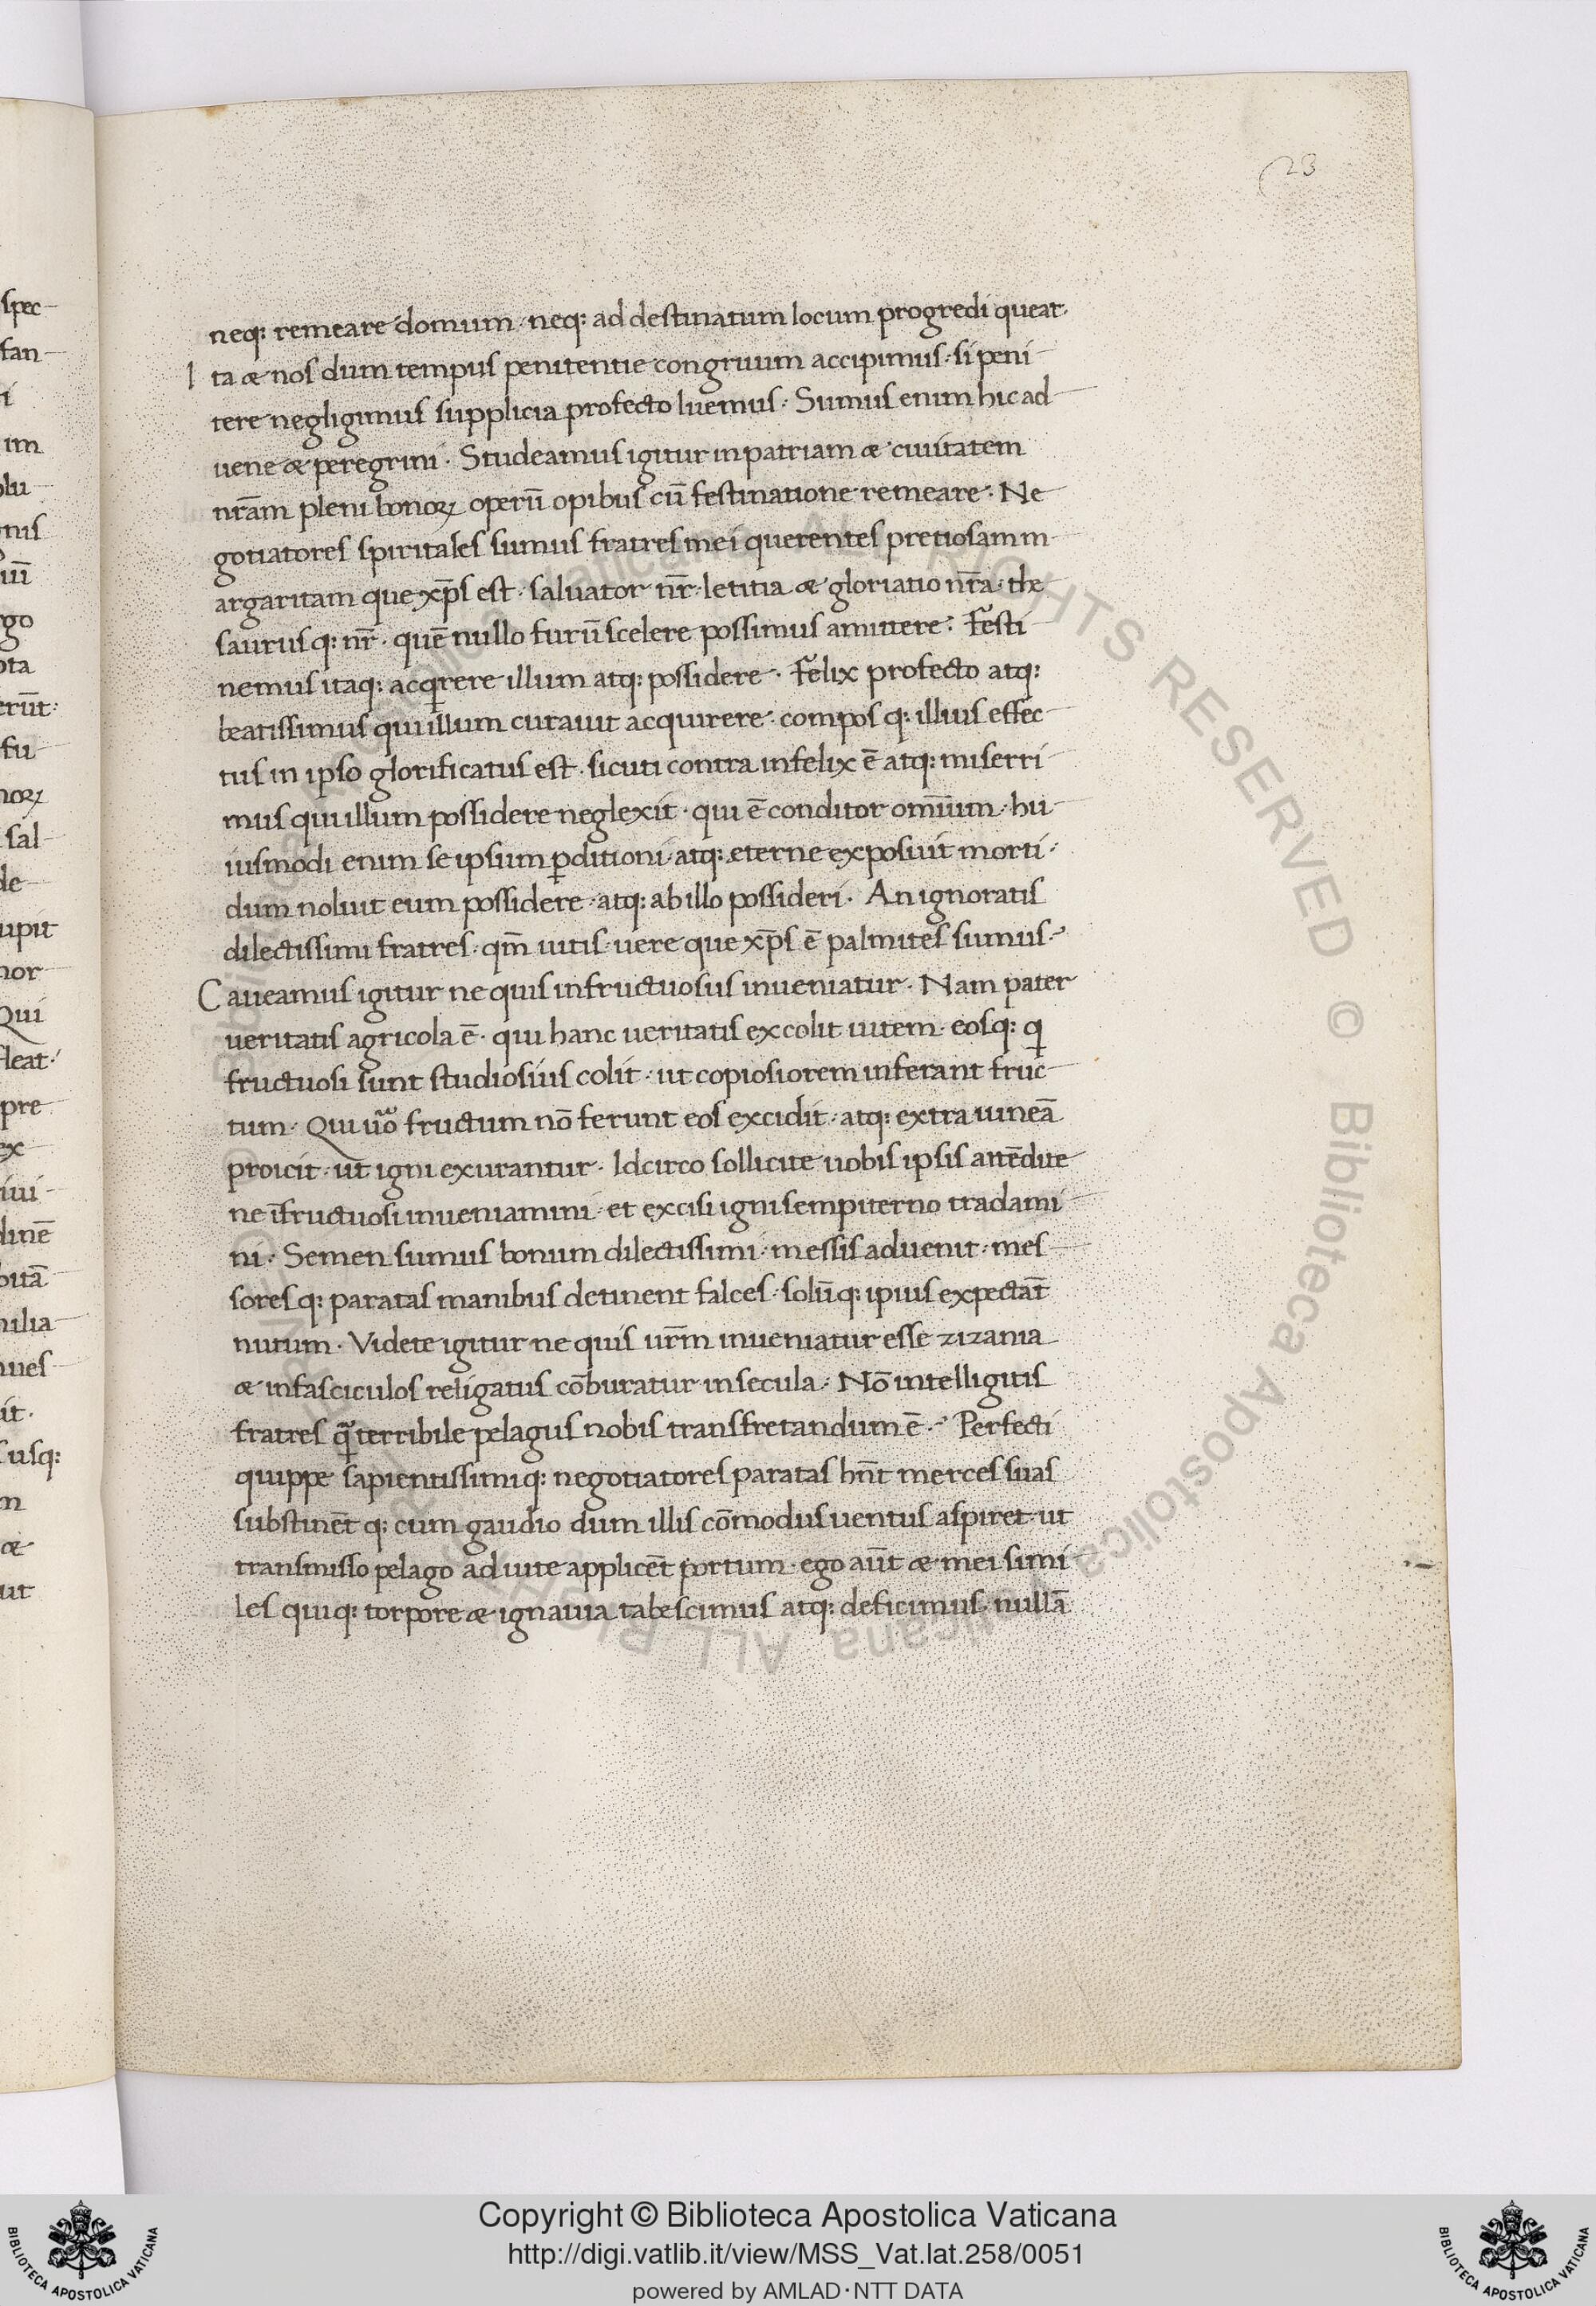 23
neq: remeare domum · neq: ad destinatum locum progredi queat ·
Ita & nos dum tempus penitentie congruum accipimus · si peni
tere negligimus supplicia profecto luemus : Sumus enim hic ad
uene & peregrini · Studeamus igitur in patriam & ciuitatem
nr̄am pleni bonoꝝ operū opibus cū festinatione remeare · Ne
gotiatores spiritales sumus fratres mei querentes pretiosam m
argaritam que xp̄s est · saluator nr̄ · letitia & gloriatio nr̄a · the
saurusq: nr̄ · quē nullo furū scelere possimus amittere : Festi
nemus itaq: acqͥrere illum atq: possidere · Felix profecto atq:
beatissimus qui illum curauit acquirere : compos q: illius effec
tus in ipso glorificatus est · sicuti contra infelix ē atq: miserri
mus qui illum possidere neglexit · qui ē conditor omīum · hu
iusmodi enim se ipsum ꝑditioni · atq: eterne exposuit morti ·
dum noluit eum possidere · atq: ab illo possideri · An ignoratis
dilectissimi fratres · qm̄ uitis · uere que xp̄s ē palmites sumus ·
Caueamus igitur ne quis infructuosus inueniatur · Nam pater
ueritatis agricola ē · qui hanc ueritatis excolit uitem · eosq: qͥ
fructuosi sunt studiosius colit · ut copiosiorem inferant fruc
tum · Qui uͦo fructum nō ferunt eos excidit · atq: extra uineā
proicit · ut igni exurantur · Idcirco sollicite uobis ipsis attēdite
ne īfructuosi inueniamini · et excisi igni sempiterno tradami
ni · Semen sumus bonum dilectissimi · messis aduenit · mes
sores q: paratas manibus detinent falces · solūq: ipius expectāt
nutum · Videte igitur ne quis ur̄m inueniatur esse zizania
& in fasciculos religatus cōburatur in secula · Nō intelligitis
fratres qᷓ terribile pelagus nobis transfretandum ē · Perfecti
quippe sapientissimi q: negotiatores paratas hn̄t merces suas
substinēt q: cum gaudio dum illis cōmodus uentus aspiret · ut
transmisso pelago ad uite applicēt portum · ego aūt & mei simi
les quiq: torpore & ignauia tabescimus atq: deficimus · nullā
Copyright © Biblioteca Apostolica Vaticana
http://digi.vatlib.it/view/MSS_Vat.lat.258/0051
powered by AMLAD·NTT DATA